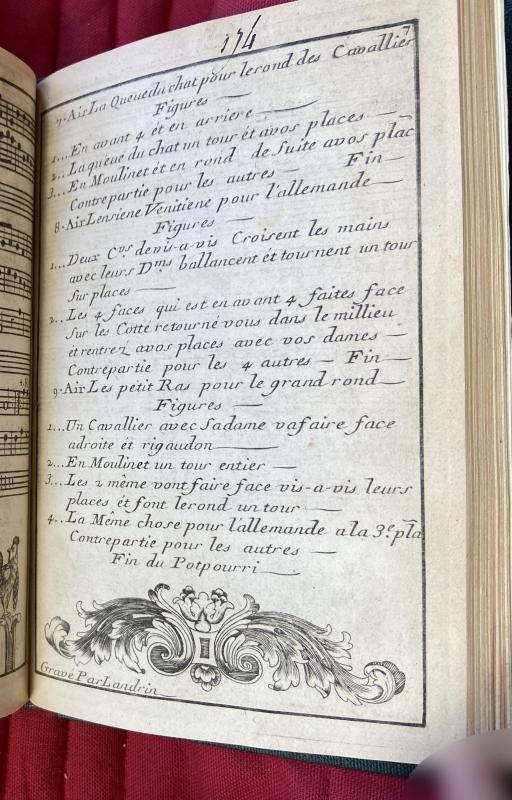 174
7
7. Air La Queue du chat pour le rond des Cavallier
Figures —
1... En avant 4 et en arriere —
2.. La queue du chat un tour et avos places —
3... En Moulinet et en rond de Suite avos plac
Contrepartie pour les autres — Fin —
8. Air Lensiene Venitiene pour l'allemande —
Figures —
1... Deux C.vrs de vis-a-vis Croisent les mains
avec leurs D.ms ballancent et tournent un tour
Sur places —
2.. Les 4 faces qui est en avant 4 faites face
Sur les Cotté retourné vous dans le millieu
et rentrez avos places avec vos dames —
Contrepartie pour les 4 autres — Fin —
9. Air Les petit Ras pour le grand rond —
Figures —
1... Un Cavallier avec Sadame va faire face
adroite et rigaudon —
2... En Moulinet un tour entier —
3... Les 2 même vont faire face vis-a-vis leurs
places et font le rond un tour —
4... La Même chose pour l'allemande a la 3.e pla
Contrepartie pour les autres —
Fin du Potpourri —
Gravé Par Landrin